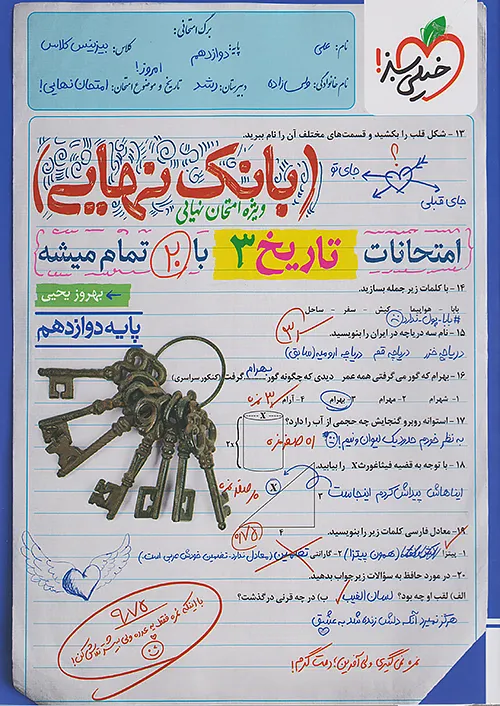 برگ امتحانی:
نام: علی
پایه: دوازدهم
کلاس: بیزینس کلاس
امروز!
دبیرستان: رشد
تاریخ و موضوع امتحان: امتحان نهایی!
خیلی سبز!
۱۳ - شکل قلب را بکشید و قسمت‌های مختلف آن را نام ببرید.
؟
جای تو
جای قبلی
(بانک نهایی)
ویژه امتحان نهایی
امتحانات تاریخ ۳ با ۲۰ تمام میشه
۱۴ - با کلمات زیر جمله بسازید.
بابا هواپیما کیش - سفر - ساحل
#بابا_پول_ندارد
← بهروز یحیی
۱۵ - نام سه دریاچه در ایران را بنویسید.
دریاچه خزر دریاچه قم دریاچه ارومیه (سابق)
پایه دوازدهم
۱۶ - بهرام که گور می‌گرفتی همه عمر دیدی که چگونه گور بهرام گرفت (کنکور سراسری)
۱- شهرام ۲- مهرام ۳- بهرام ۴- آرام
۱۷ - استوانه روبرو گنجایش چه حجمی از آب را دارد؟
X
۲x
به نظر خودم حدود یک لیوان و نیم!
۱۸ - با توجه به قضیه فیثاغورث X را بیابید.
ایناهاش پیداش کردم اینجاست
X
۳
۴
۱۹ - معادل فارسی کلمات زیر را بنویسید.
۱- پیتزا (همون پیتزا) ۲- گارانتی تضمین (معادل ندارد. تضمین خودش عربی است.)
۲۰ - در مورد حافظ به سؤالات زیر جواب بدهید.
الف) لقب او چه بود؟ لسان الغیب ب) در چه قرنی درگذشت؟
هرگز نمیرد آنکه دلش زنده شد به عشق
۹/۷۵
با اینکه نمره فقط یه عدده ولی بیشتر تلاش کن!
نمره نمی‌گیری ولی آفرین! دمت گرم!